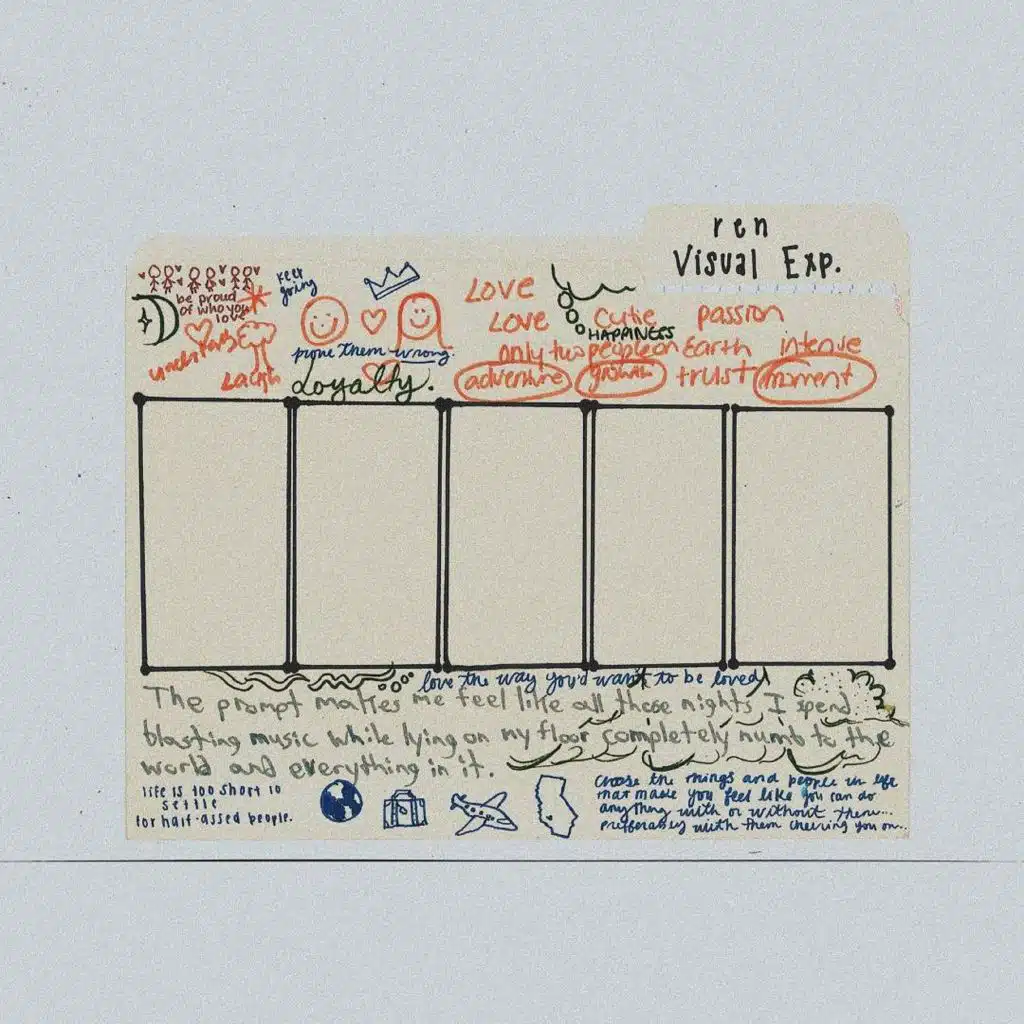 ren
Visual Exp.
keep going
be proud
of who you
love
understands
Laugh
prove them wrong.
Loyalty.
Love
Love
Cutie
passion
HAPPINESS
only two people on Earth
intense
adventure
growth
trust
moment
love the way you'd want to be loved
The prompt makes me feel like all these nights I spend
blasting music while lying on my floor completely numb to the
world and everything in it.
life is too short to
settle
for half-assed people.
Choose the things and people in life
that make you feel like you can do
anything with or without them...
preferably with them cheering you on...